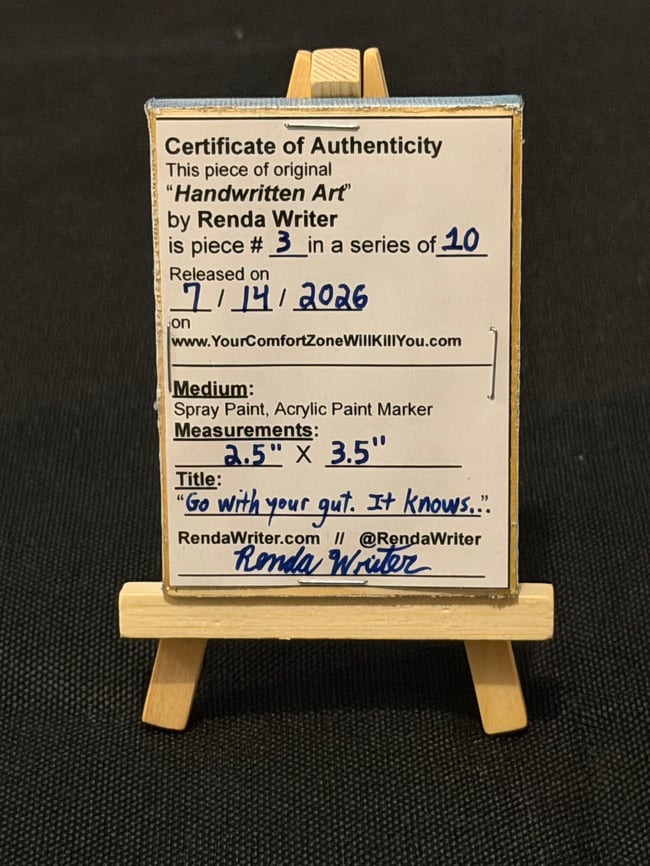 Certificate of Authenticity
This piece of original
"Handwritten Art"
by Renda Writer
is piece # 3 in a series of 10
Released on
7 / 14 / 2026
on
www.YourComfortZoneWillKillYou.com
Medium:
Spray Paint, Acrylic Paint Marker
Measurements:
2.5" X 3.5"
Title:
"Go with your gut. It knows..."
RendaWriter.com // @RendaWriter
Renda Writer